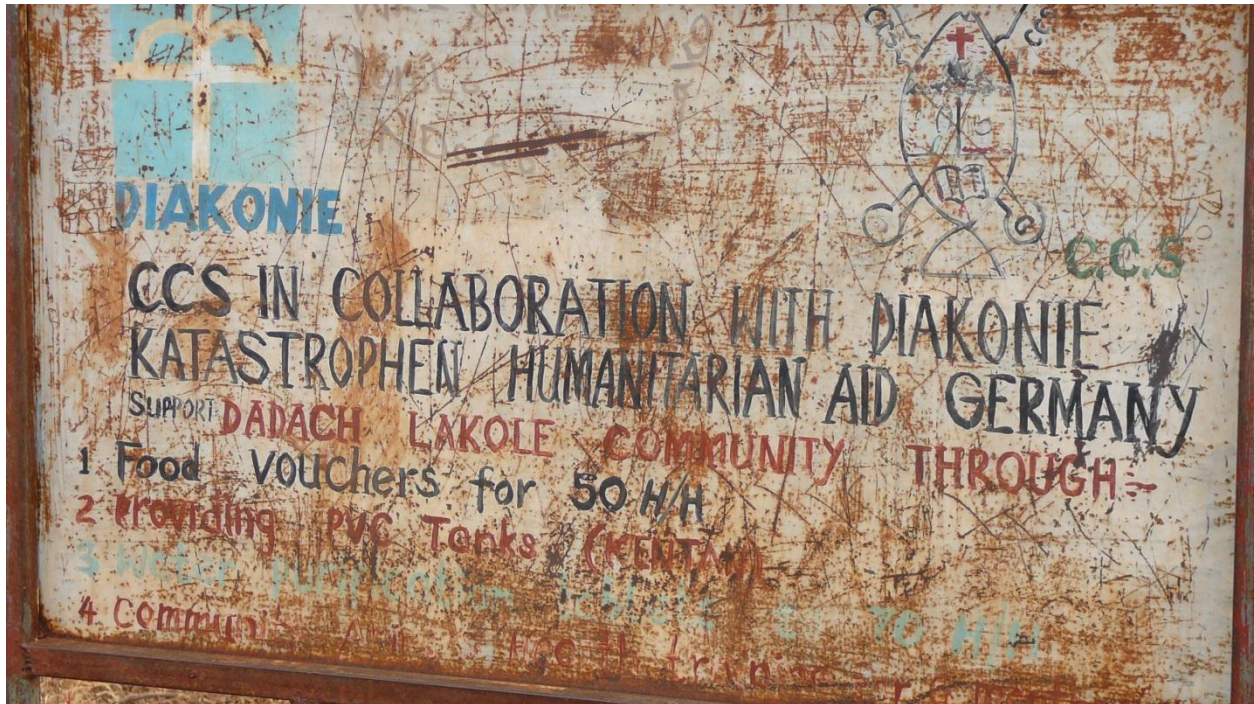 DIAKONIE
C.C.S
CCS IN COLLABORATION WITH DIAKONIE
KATASTROPHEN HUMANITARIAN AID GERMANY
SUPPORT DADACH LAKOLE COMMUNITY THROUGH:-
1 Food vouchers for 50 H/H
2 Providing PVC Tanks (KENTANK)
3 Water purification tablets 70 H/H
4 Community training